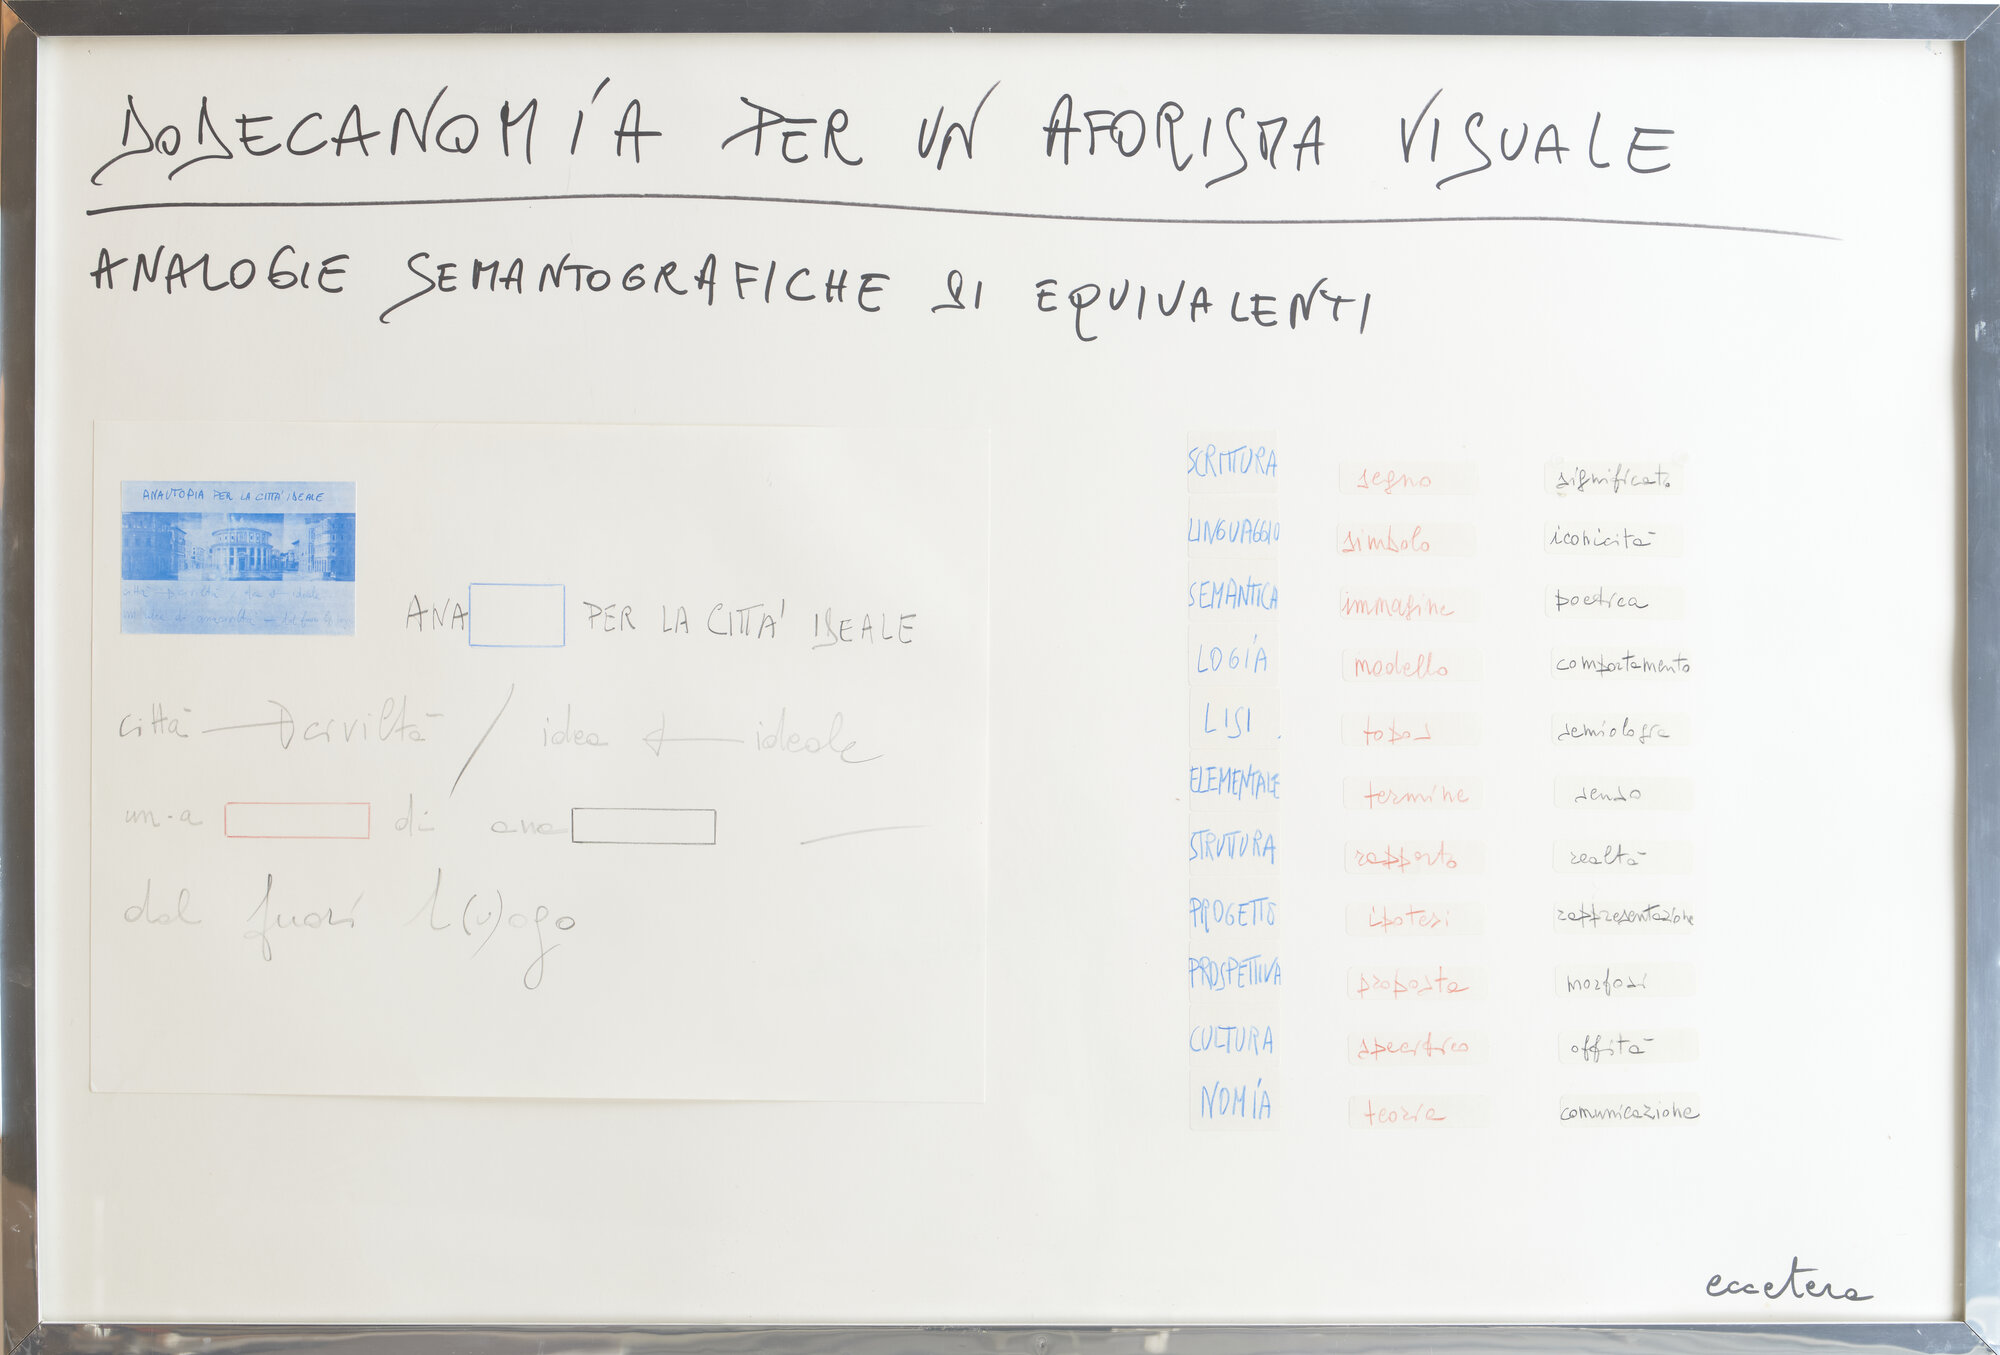 DODECANOMÍA PER UN AFORISMA VISUALE
ANALOGIE SEMANTOGRAFICHE DI EQUIVALENTI
ANAUTOPIA PER LA CITTÀ IDEALE
città civiltà / idea ideale
un'idea di anaciviltà – dal fuori
ANA PER LA CITTÀ IDEALE
città civiltà / idea ideale
un·a di ana
dal fuori l(u)ogo
SCRITTURA segno significato
LINGUAGGIO simbolo iconicità
SEMANTICA immagine poetica
LOGÍA modello comportamento
LISI topos semiologia
ELEMENTALE termine senso
STRUTTURA rapporto realtà
PROGETTO ipotesi rappresentazione
PROSPETTIVA proposta morfosi
CULTURA specifico offità
NOMÍA teoria comunicazione
eccetera